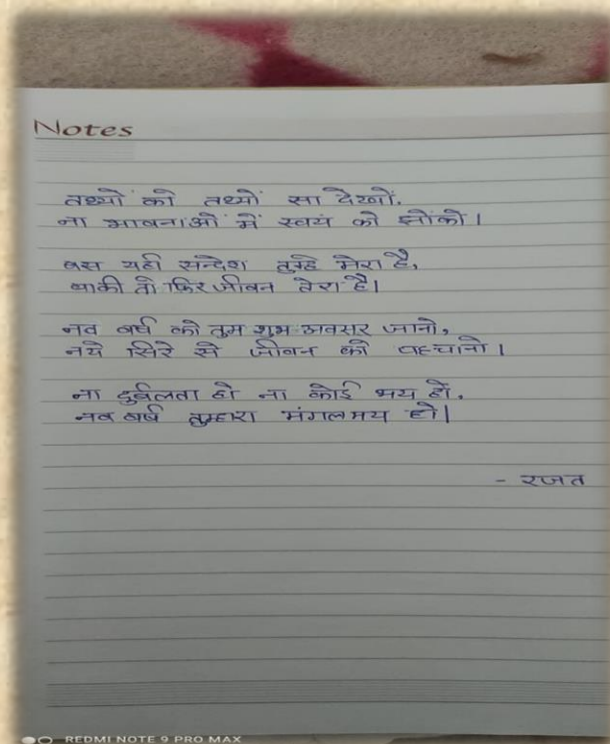 Notes
तथ्यों को तथ्यों सा देखों,
ना भावनाओं में स्वयं को झोंको।
बस यही सन्देश तुम्हे मेरा है,
बाकी तो फिर जीवन तेरा है।
नव वर्ष को तुम शुभ अवसर जानो,
नये सिरे से जीवन को पहचानो।
ना दुर्बलता हो ना कोई भय हो,
नव वर्ष तुम्हारा मंगलमय हो।
- रजत
REDMI NOTE 9 PRO MAX